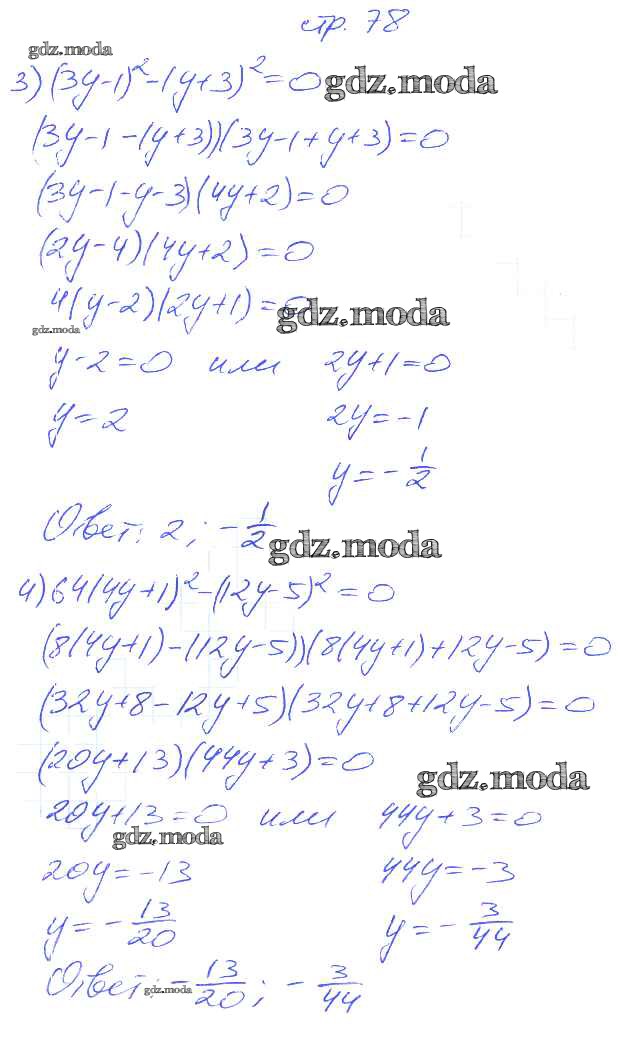 стр. 78
gdz.moda
3) (3y-1)² - (y+3)² = 0 gdz.moda
(3y-1-(y+3))(3y-1+y+3)=0
(3y-1-y-3)(4y+2)=0
(2y-4)(4y+2)=0
4(y-2)(2y+1)=0 gdz.moda
gdz.moda
y-2=0 или 2y+1=0
y=2 2y=-1
y=-1/2
Ответ: 2; -1/2 gdz.moda
4) 64(4y+1)² - (12y-5)² = 0
(8(4y+1)-(12y-5))(8(4y+1)+12y-5)=0
(32y+8-12y+5)(32y+8+12y-5)=0
(20y+13)(44y+3)=0
gdz.moda
20y+13=0 или 44y+3=0
gdz.moda
20y=-13 44y=-3
y=-13/20 y=-3/44
Ответ: gdz.moda -13/20; -3/44